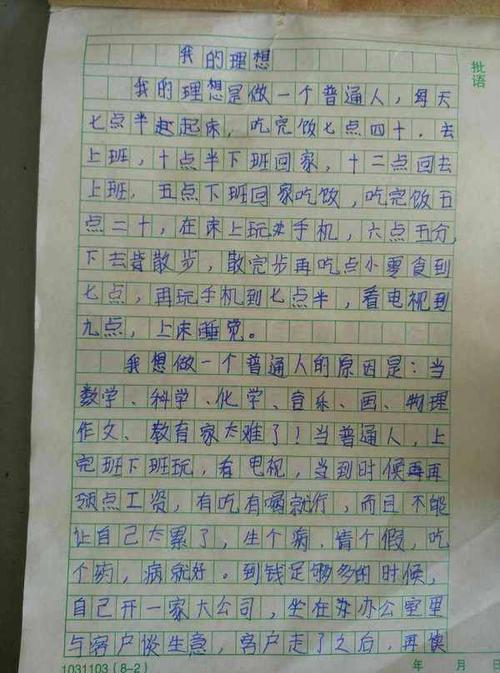 我的理想
批语
我的理想是做一个普通人，每天
七点半起床，吃完饭七点四十，去
上班，十点半下班回家，十二点回去
上班，五点下班回家吃饭，吃完饭五
点二十，在床上玩手机，六点五分，
下去散步，散完步再吃点小零食到
七点，再玩手机到七点半，看电视到
九点，上床睡觉。
我想做一个普通人的原因是：当
数学、科学、化学、音乐、画、物理
作文、教育家太难了！当普通人，上
完班下班玩，看电视，当到时候再再
领点工资，有吃有喝就行，而且不能
让自己太累了，生个病，请个假，吃
个药，病就好。到钱足够多的时候，
自己开一家大公司，坐在办公室里
与客户谈生意，客户走了之后，再
1031103(8-2)
年 月 日